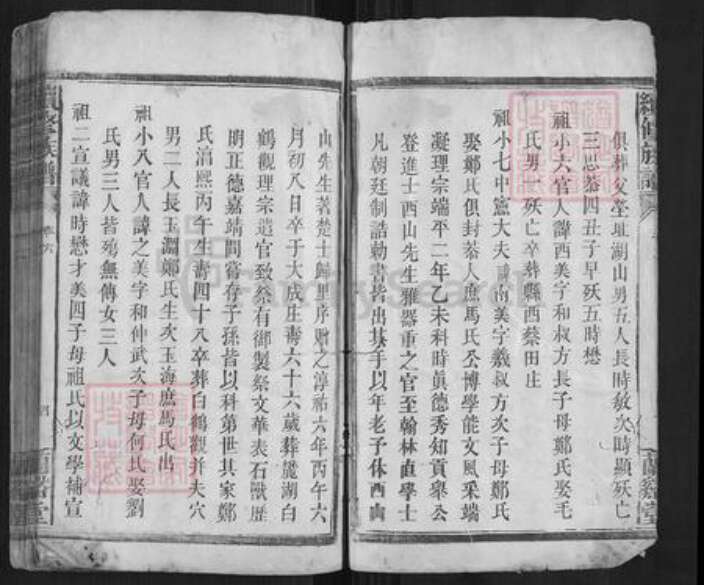 俱葬父塋址湖山男五人長時敏次時顯殀亡
三思恭四丑子早殀五時懋
祖小六官人諱西美字和叔方長子母鄭氏娶毛
氏男一殀亡卒葬縣西蔡田庄
祖小七中憲大夫諱南美字羲叔方次子母鄭氏
娶鄭氏俱封恭人庶馬氏公博學能文風采端
凝理宗端平二年乙未科時真德秀知貢舉公
登進士西山先生雅器重之官至翰林直學士
凡朝廷制誥勅書皆出其手以年老予休西山
山先生著楚士歸里序贈之淳祐六年丙午六
月初八日卒于大成庄壽六十六歲葬麗湖白
鶴觀理宗遣官致祭有御製祭文華表石獸歷
明正德嘉靖間嘗存子孫皆以科第世其家鄭
氏淳熙丙午生壽四十八卒葬白鶴觀并夫穴
男二人長玉淵鄭氏生次玉海庶馬氏出
祖小八官人諱之美字和仲武次子母何氏娶劉
氏男三人皆殤無傳女三人
祖二宣議諱時懋才美四子母祖氏以文學補宣
續修族譜
卷六
四
蘭谿堂
續修族譜
蘭谿堂
FamilySearch